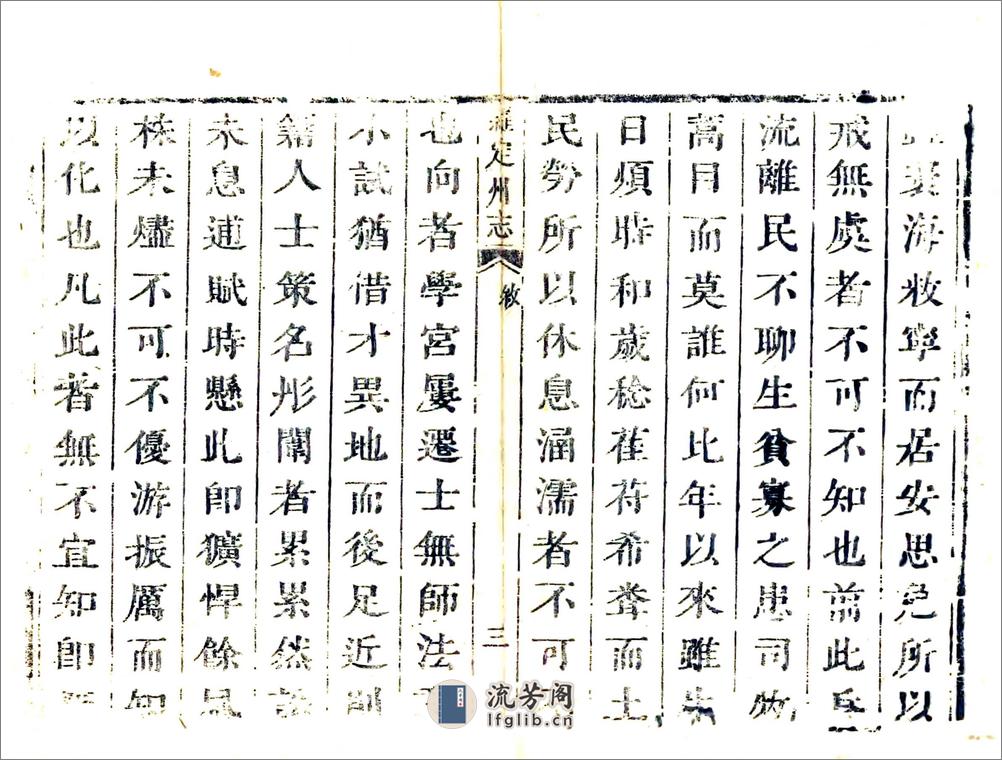 裴海牧寧而居安思危所以
戒無虞者不可不知也前此兵
流離民不聊生貧寡之患司牧
蒿目而莫誰何比年以來雖
日頻時和歲稔萑苻希聳而土
民勞所以休息涵濡者不可
定州志
敘
三
也向者學宮屢遷士無師法
小試猶借才異地而後足近則
籍人士策名彤闈者累累然
未息逋賦時懸此即獷悍餘風
株未燼不可不優游振厲而知
以化也凡此者無不宜知即
流芳阁
lfglib.cn